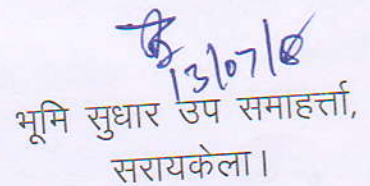 13/07/18
भूमि सुधार उप समाहर्त्ता,
सरायकेला।